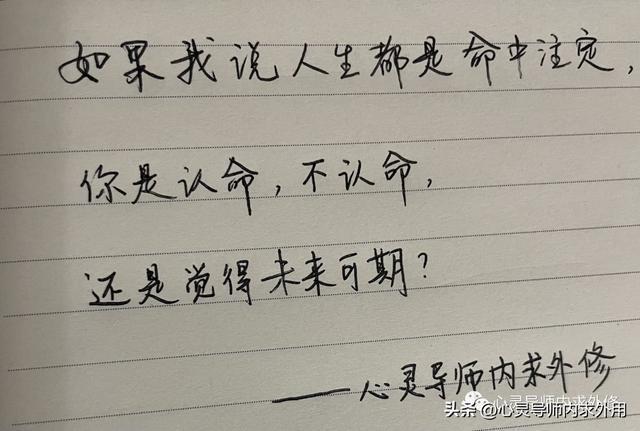 如果我说人生都是命中注定，
你是认命，不认命，
还是觉得未来可期？
——心灵导师内求外修
心灵导师内求外修
头条 @心灵导师内求外用